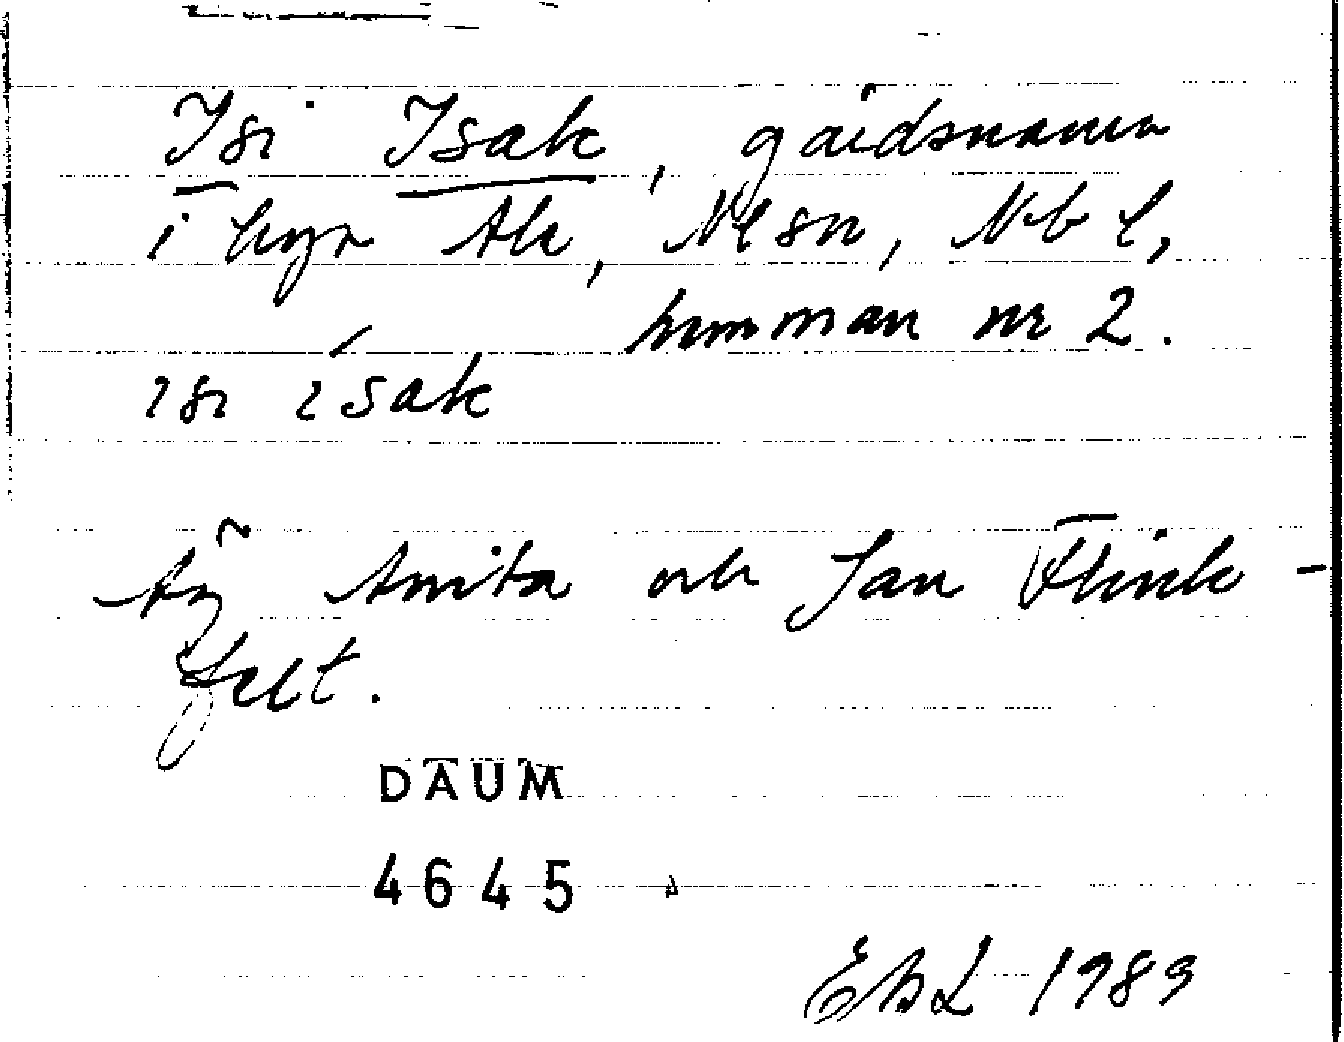 Isi Isak, gårdsnamn
i byn Ak, Nysn, Vb l,
hemman nr 2.
isi isak
Äg Anita och Jan Flink-
felt.
DAUM
4645
EbL 1989